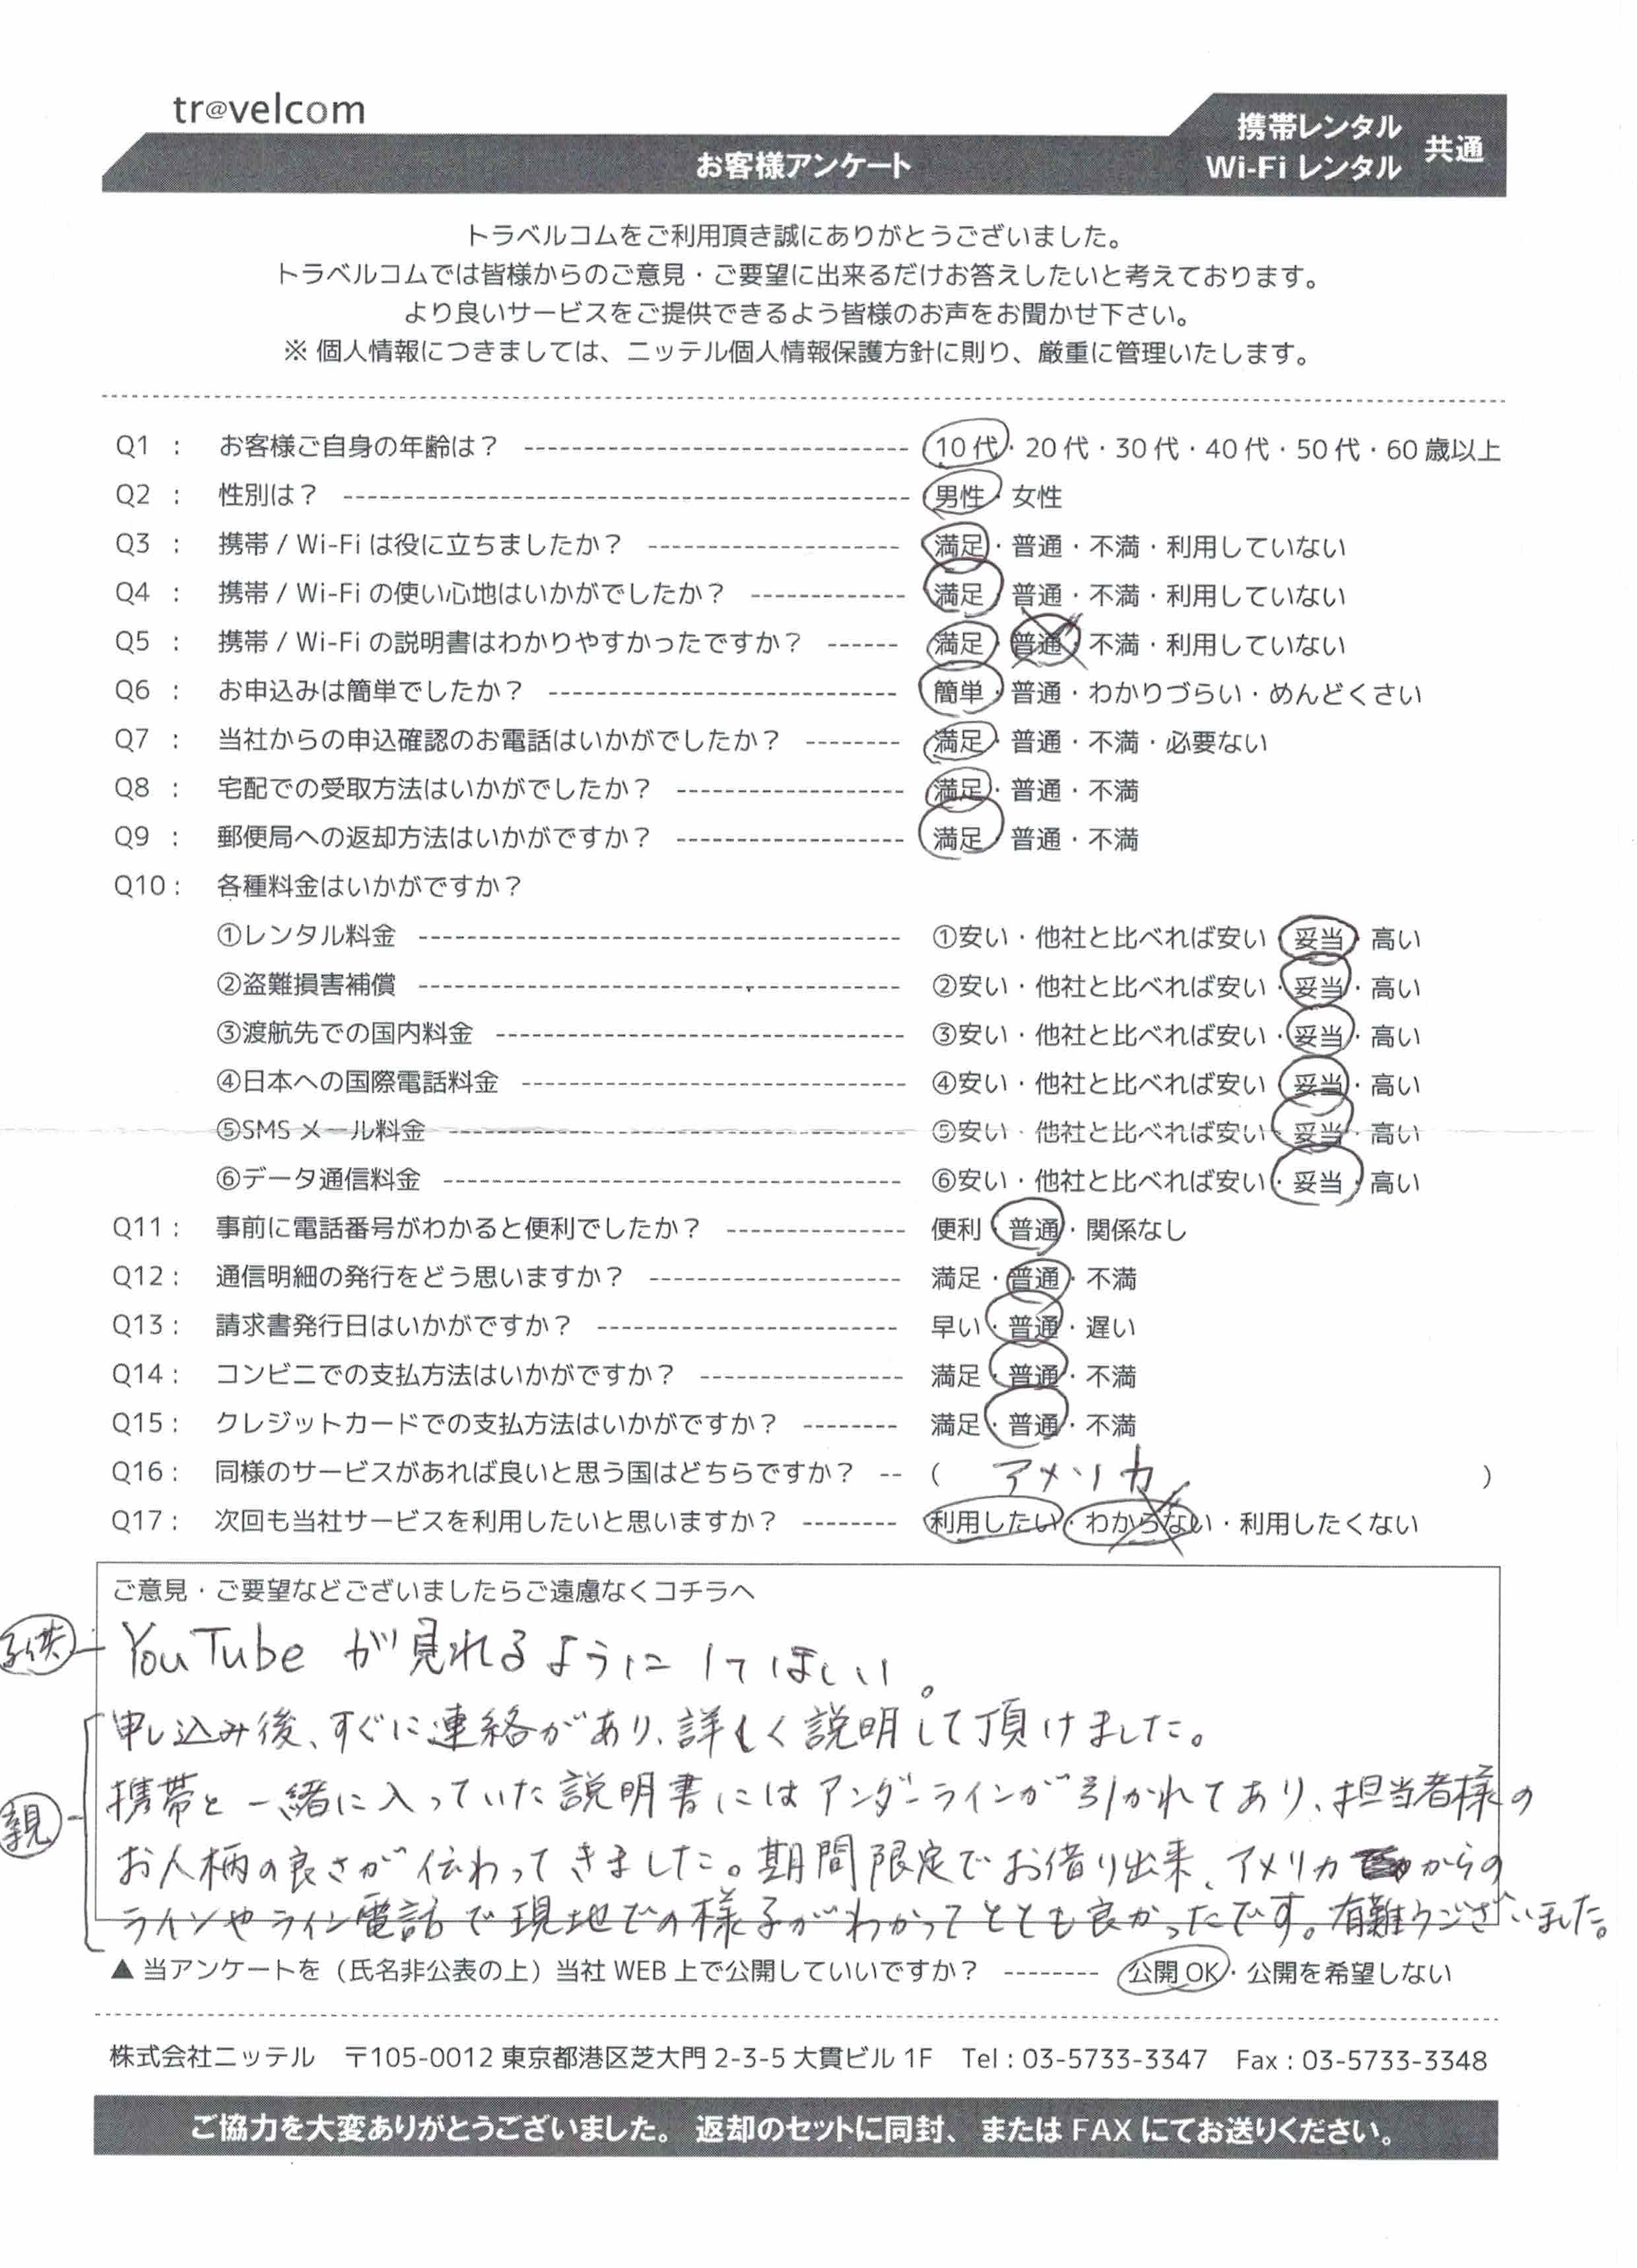 tr@velcom
お客様アンケート
携帯レンタル
Wi-Fi レンタル
共通
トラベルコムをご利用頂き誠にありがとうございました。
トラベルコムでは皆様からのご意見・ご要望に出来るだけお答えしたいと考えております。
より良いサービスをご提供できるよう皆様のお声をお聞かせ下さい。
※ 個人情報につきましては、ニッテル個人情報保護方針に則り、厳重に管理いたします。
Q1 : お客様ご自身の年齢は? 10代・20代・30代・40代・50代・60歳以上
Q2 : 性別は? 男性・女性
Q3 : 携帯 / Wi-Fi は役に立ちましたか? 満足・普通・不満・利用していない
Q4 : 携帯 / Wi-Fi の使い心地はいかがでしたか? 満足・普通・不満・利用していない
Q5 : 携帯 / Wi-Fi の説明書はわかりやすかったですか? 満足・普通・不満・利用していない
Q6 : お申込みは簡単でしたか? 簡単・普通・わかりづらい・めんどくさい
Q7 : 当社からの申込確認のお電話はいかがでしたか? 満足・普通・不満・必要ない
Q8 : 宅配での受取方法はいかがでしたか? 満足・普通・不満
Q9 : 郵便局への返却方法はいかがですか? 満足・普通・不満
Q10 : 各種料金はいかがですか?
①レンタル料金 ①安い・他社と比べれば安い・妥当・高い
②盗難損害補償 ②安い・他社と比べれば安い・妥当・高い
③渡航先での国内料金 ③安い・他社と比べれば安い・妥当・高い
④日本への国際電話料金 ④安い・他社と比べれば安い・妥当・高い
⑤SMS メール料金 ⑤安い・他社と比べれば安い・妥当・高い
⑥データ通信料金 ⑥安い・他社と比べれば安い・妥当・高い
Q11 : 事前に電話番号がわかると便利でしたか? 便利・普通・関係なし
Q12 : 通信明細の発行をどう思いますか? 満足・普通・不満
Q13 : 請求書発行日はいかがですか? 早い・普通・遅い
Q14 : コンビニでの支払方法はいかがですか? 満足・普通・不満
Q15 : クレジットカードでの支払方法はいかがですか? 満足・普通・不満
Q16 : 同様のサービスがあれば良いと思う国はどちらですか? ( アメリカ )
Q17 : 次回も当社サービスを利用したいと思いますか? 利用したい・わからない・利用したくない
ご意見・ご要望などございましたらご遠慮なくコチラへ
子供 YouTube が見れるようにしてほしい。
申し込み後、すぐに連絡があり、詳しく説明して頂けました。
携帯と一緒に入っていた説明書にはアンダーラインが引かれてあり、担当者様の
親
お人柄の良さが伝わってきました。期間限定でお借り出来、アメリカからの
ラインやライン電話で現地での様子がわかってとても良かったです。有難うございました。
▲ 当アンケートを（氏名非公表の上）当社 WEB 上で公開していいですか? 公開 OK・公開を希望しない
株式会社ニッテル 〒105-0012 東京都港区芝大門 2-3-5 大貫ビル 1F Tel : 03-5733-3347 Fax : 03-5733-3348
ご協力を大変ありがとうございました。 返却のセットに同封、 または FAX にてお送りください。